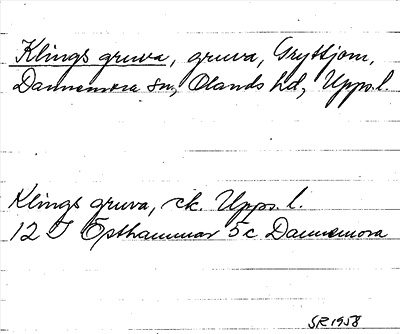 Klings gruva, gruva, Gryttjom,
Dannemora sn, Olands hd, Upps. l.
Klings gruva, ek. Upps. l.
12 I Östhammar 5c Dannemora
SR 1958